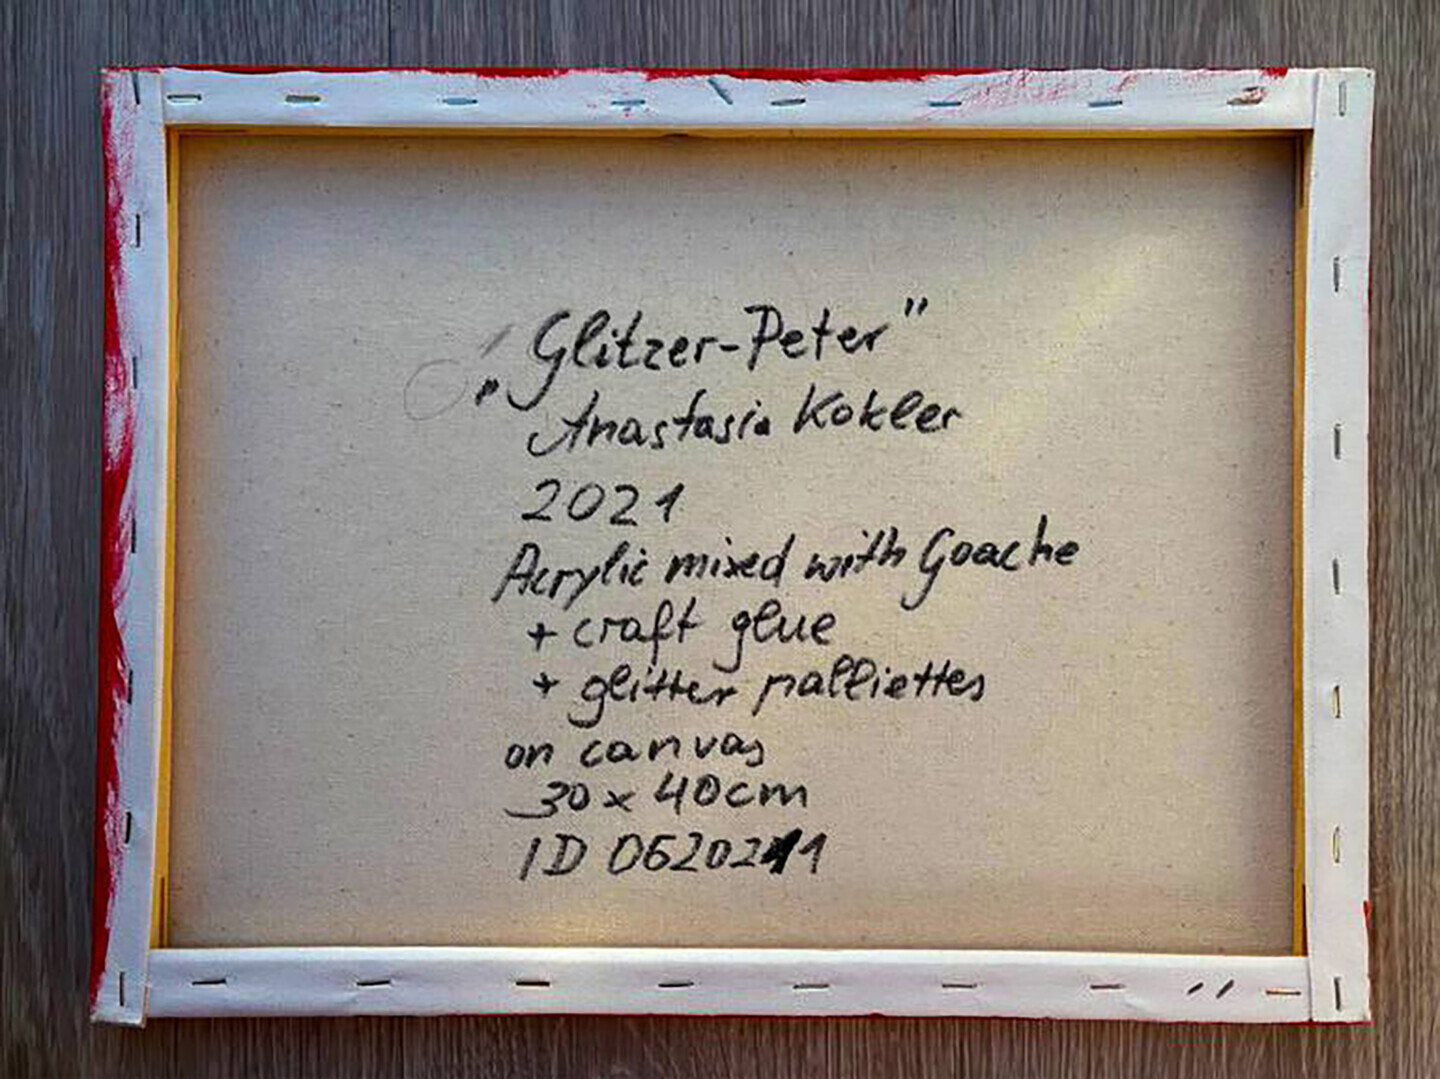 „Glitzer-Peter"
Anastasia Kokler
2021
Acrylic mixed with Goache
+ craft glue
+ glitter palliettes
on canvas
30 x 40cm
ID 0620211